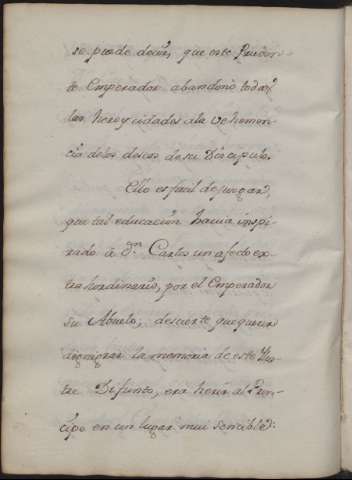 se puede decir, que este Pruden-
te Emperador abandonó todas
las heroycidades ala vehemen-
cia delos deseos desu Discipulo.
Ello es facil dejuzgar,
que tal educacion havia inspi-
rado à Dn. Carlos un afecto ex-
trahordinario, por el Emperador
su Abuelo, desuerte quequerer
denigrar la memoria de este Ilus-
tre Difunto, era herir al Prin-
cipe en un lugar mui sencible: